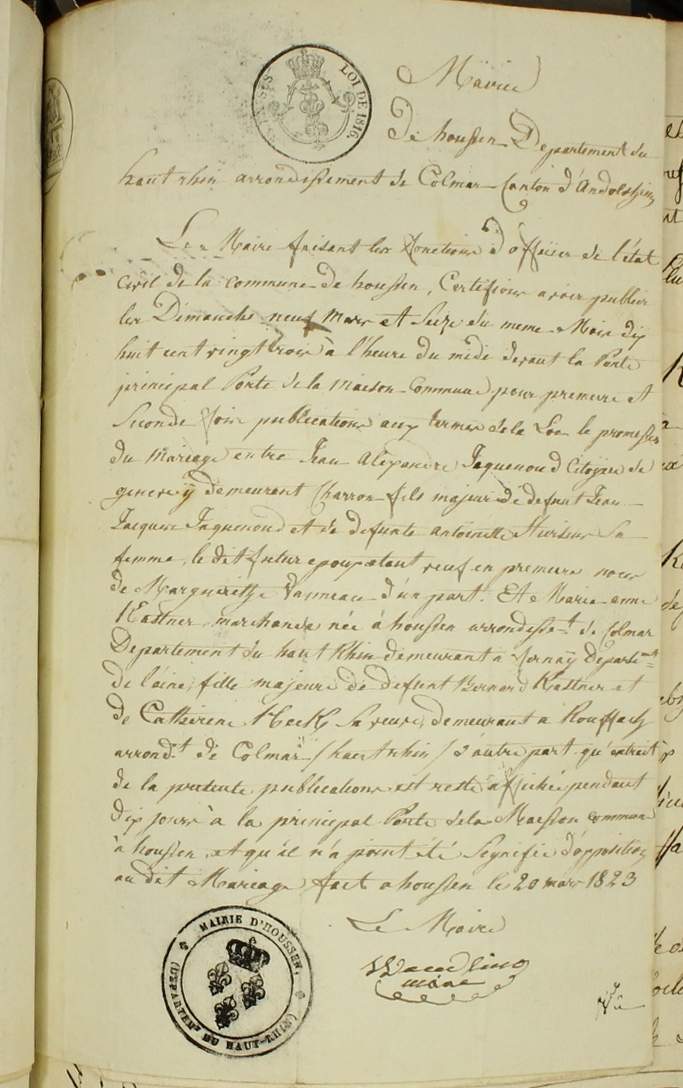 LOI DE 1816.
Mairie
De houssen Departement du
haut rhin arrondissement de Colmar Canton d'Andolsheim
Le Maire faisant les fonctions d'officier de l'état
civil de la commune de houssen, Certifions avoir publier
les Dimanche neuf Mars et Seize du meme Mois dix
huit cent vingt trois à l'heure du midi devant la Porte
principal Porte de la maison Commune pour premiere et
Seconde fois publications aux termes de la Loi le promesses
du Mariage entre Jean Alexandre Jaquenoud Citoyen de
demeurant Charron fils majeur de defunt Jean
Jacques Jaquenoud et de defunte antoinette sa
femme, le dit futur epoux etant veuf en premiere noces
de Margueritte Vanneau d'un part. Et Marie anne
Kastner marchande née à houssen arrondisse.t de Colmar
Departement du haut Rhin demeurant a fornaÿ Departe.mt
de l'aine, fille majeure de defunt Bernard Kastner et
de Catherine Heck sa veuve, demeurant a Rouffach
arrond.t de Colmar (haut rhin) d'autre part qu'extrait
de la presente publications est resté affiché pendant
dix jours à la principal Porte dela Maison commune
à houssen, et qu'il n'a point été Signifie d'opposition
au dit Mariage fait a houssen le 20 mars 1823
Le Maire
maire
MAIRIE D'HOUSSEN,
(DÉPARTEM.T DU HAUT-RHIN)